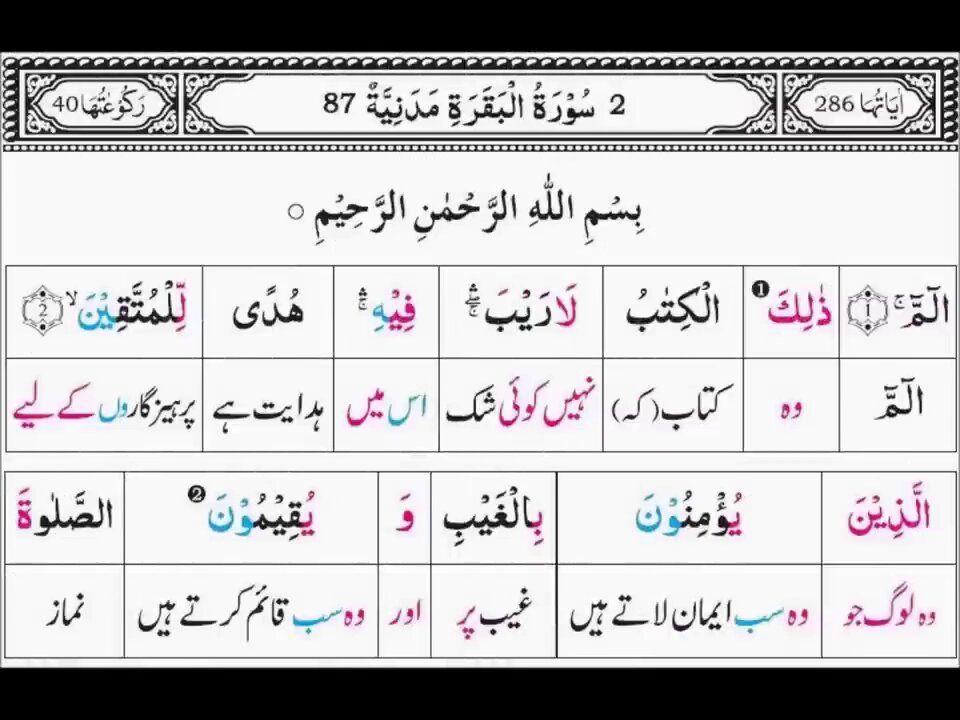 اٰيَاتُهَا 286 2 سُوْرَةُ الْبَقَرَةِ مَدَنِيَّةٌ 87 رَكُوْعَاتُهَا 40
بِسْمِ اللّٰهِ الرَّحْمٰنِ الرَّحِيْمِ ○
الٓمّٓ ۚ 1 ذٰلِكَ ❶ الْكِتٰبُ لَا رَيْبَ ۛۖ فِيْهِ ۛۚ هُدًى لِّلْمُتَّقِيْنَ ۙ 2
الٓمّٓ وہ کتاب (کہ) نہیں کوئی شک اس میں ہدایت ہے پرہیزگاروں کے لیے
الَّذِيْنَ يُؤْمِنُوْنَ بِالْغَيْبِ وَ يُقِيْمُوْنَ ❷ الصَّلٰوةَ
وہ لوگ جو وہ سب ایمان لاتے ہیں غیب پر اور وہ سب قائم کرتے ہیں نماز